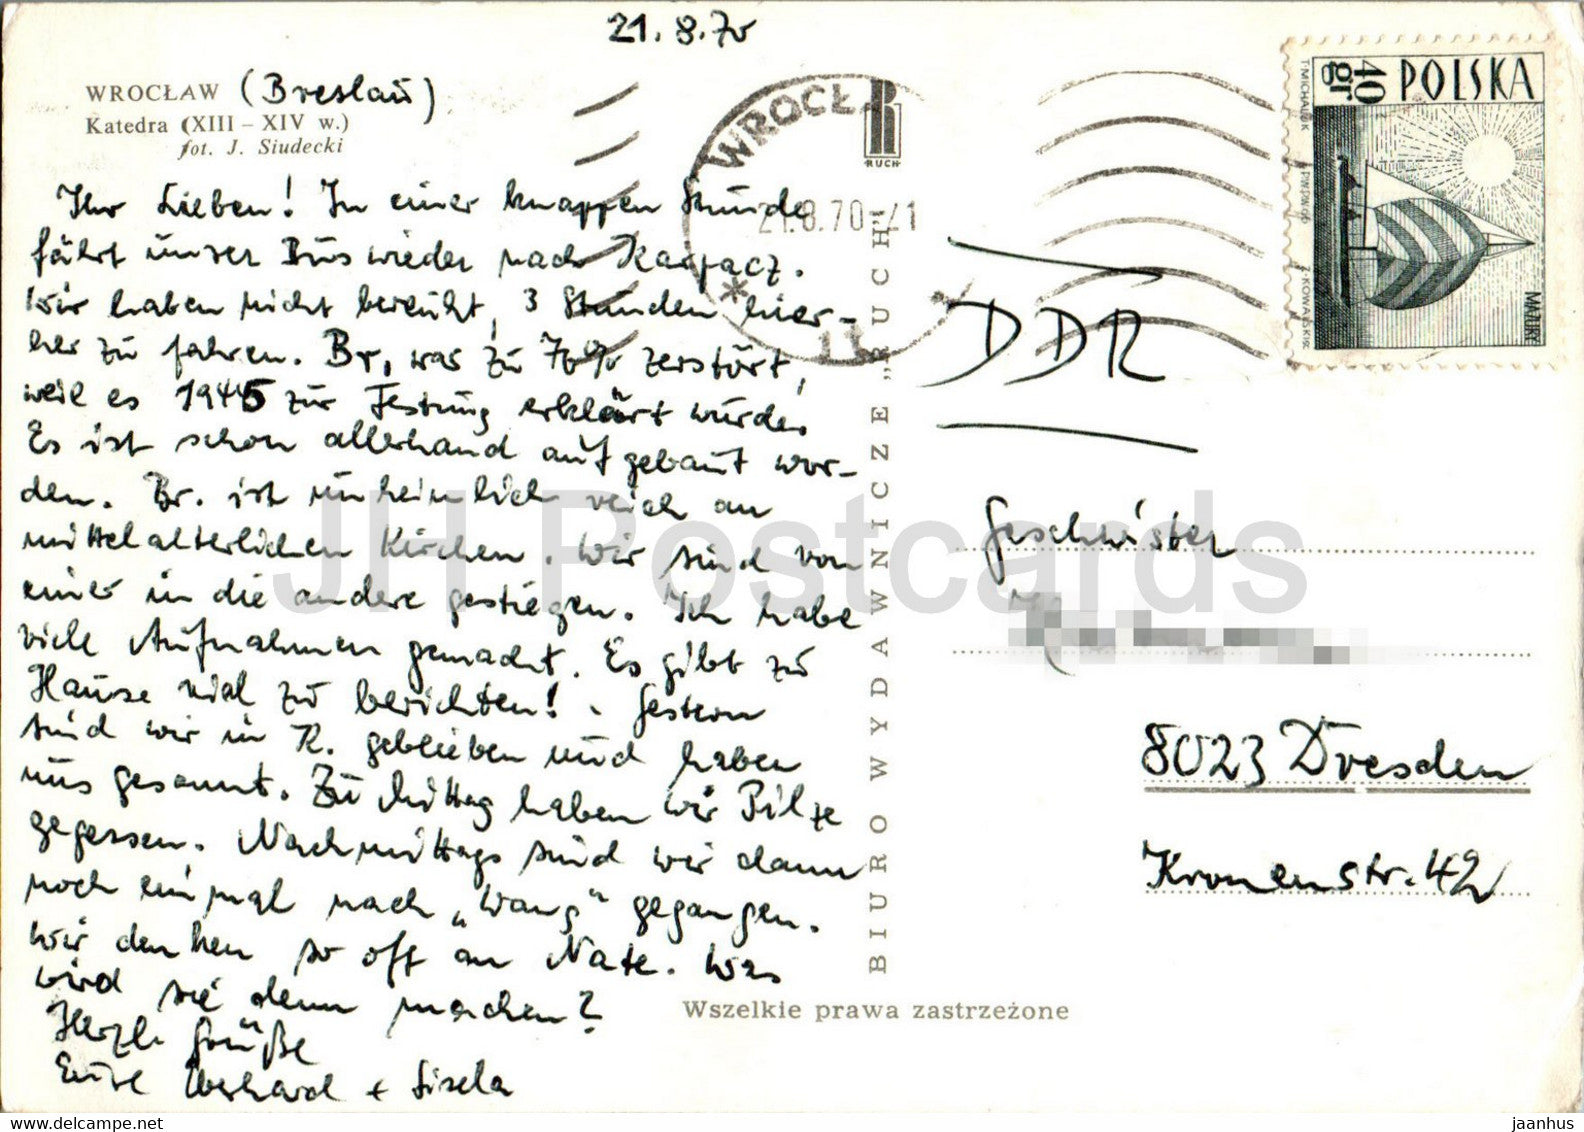 21.8.70
WROCŁAW (Breslau)
Katedra (XIII – XIV w.)
fot. J. Siudecki
Ihr Lieben! In einer knappen Stunde
fährt unser Bus wieder nach Karpacz.
Wir haben nicht bereut, 3 Stunden hier-
her zu fahren. Br. war zu 70% zerstört,
weil es 1945 zur Festung erklärt wurde.
Es ist schon allerhand aufgebaut wor-
den. Br. ist unheimlich reich an
mittelalterlichen Kirchen. Wir sind von
einer in die andere gestiegen. Ich habe
viele Aufnahmen gemacht. Es gibt zu
Hause viel zu berichten! - Gestern
sind wir in K. geblieben und haben
uns gesonnt. Zu Mittag haben wir Pilze
gegessen. Nachmittags sind wir dann
noch einmal nach „Wang“ gegangen.
Wir denken so oft an Nate. Was
wird sie denn machen?
Herzl. Grüße
Eure Eberhard + Gisela
WROCŁ
21.8.70-21
11
RUCH
BIURO WYDAWNICZE „RUCH”
Wszelkie prawa zastrzeżone
POLSKA
40 gr
MAZURY
T. MICHALUK
DDR
Geschwister
8023 Dresden
Kronenstr. 42
JH Postcards
www.delcampe.net
jaanhus